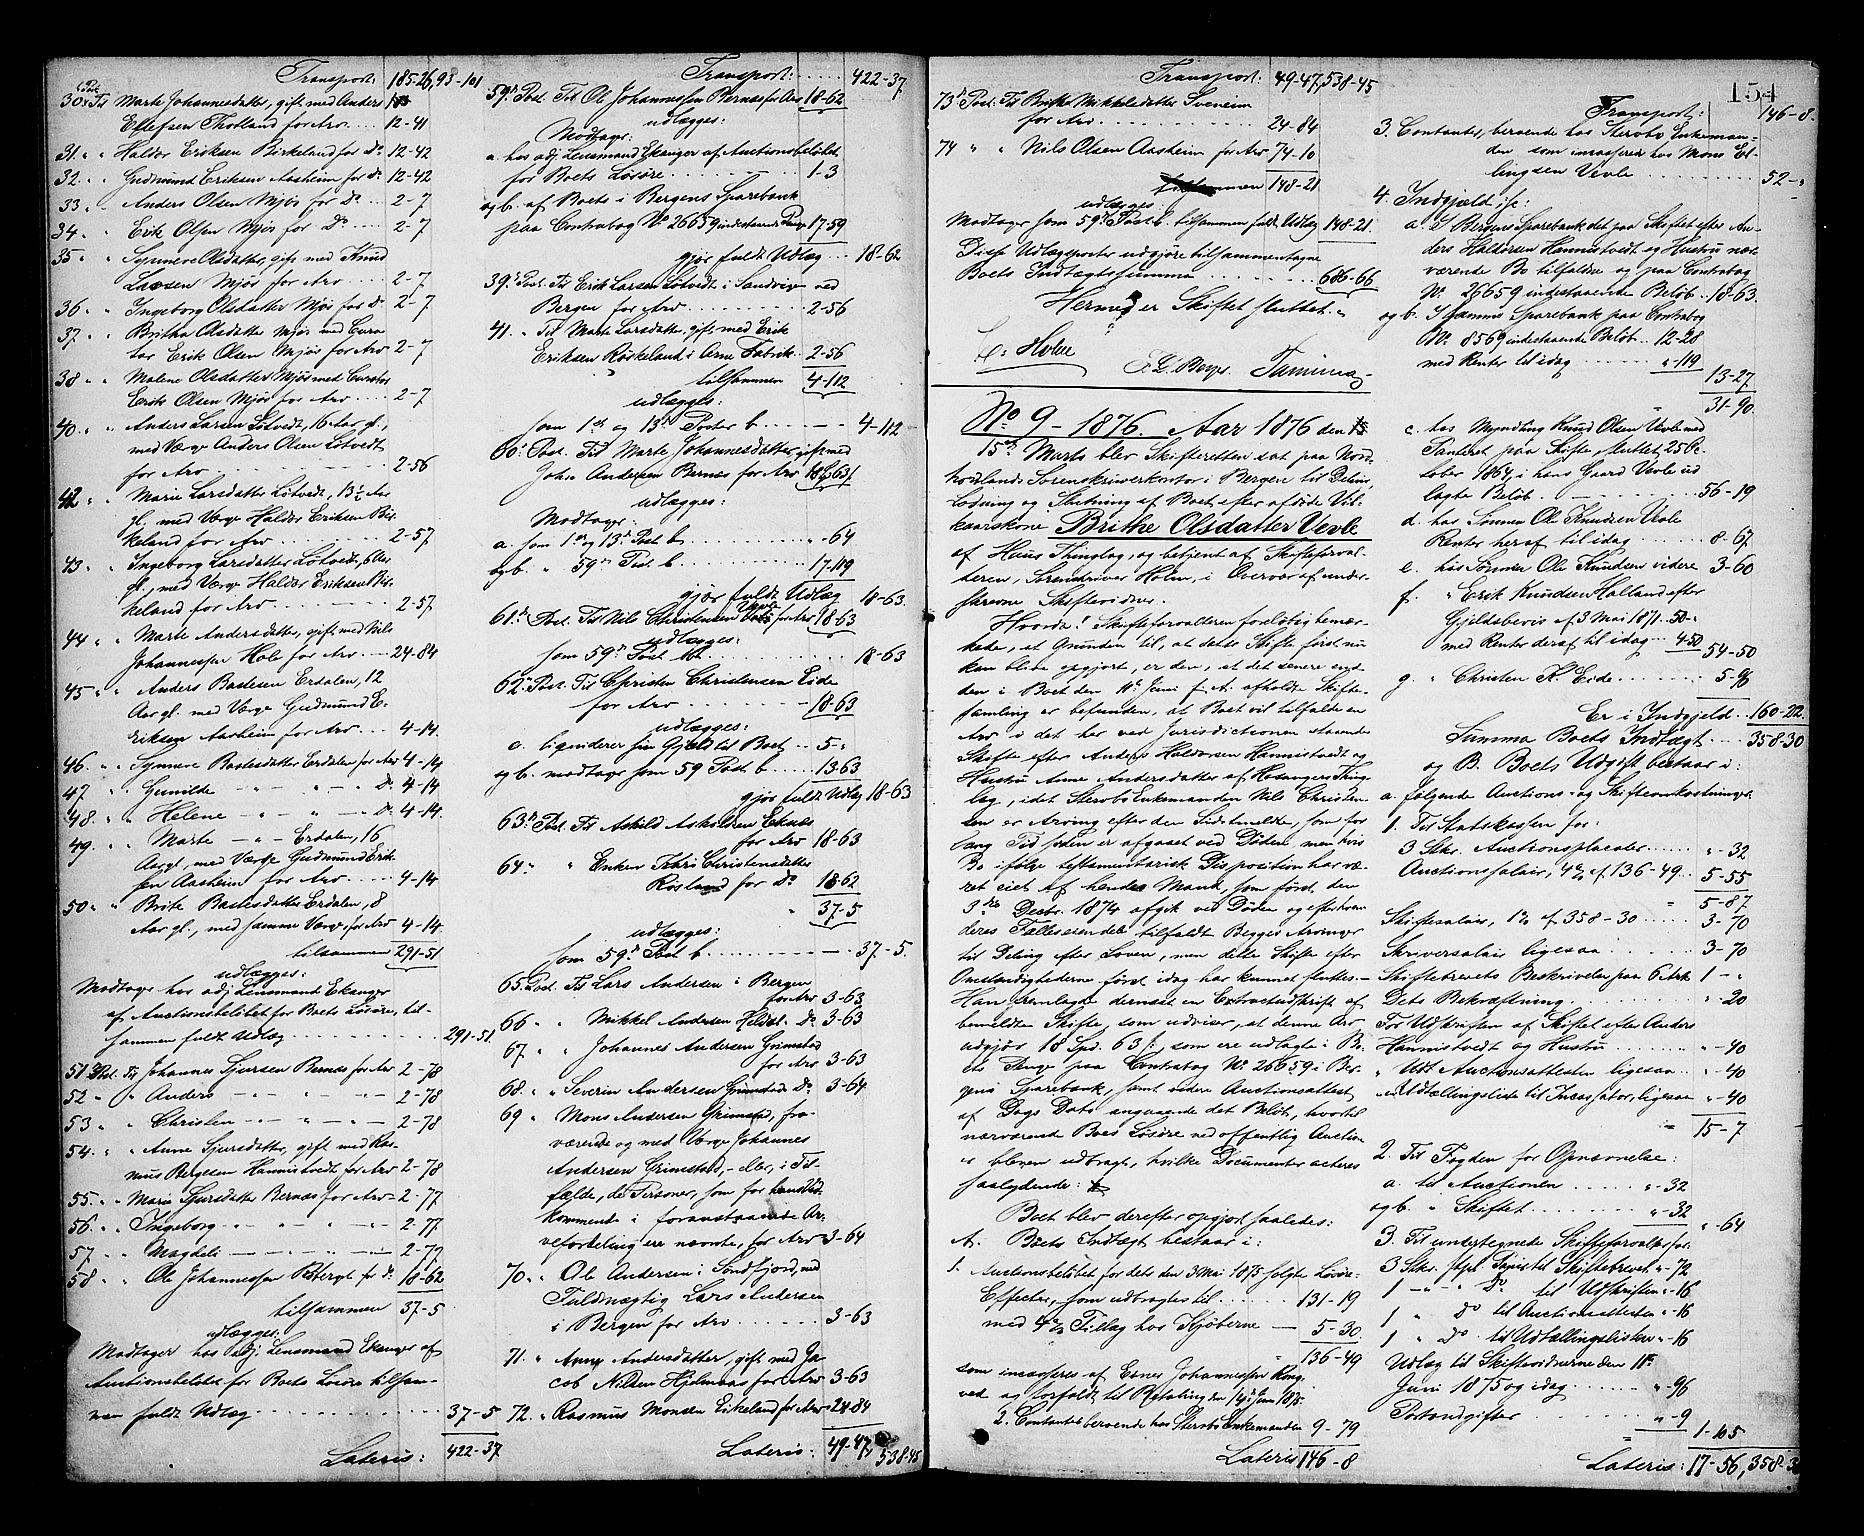 Transport: 185-26, 93-101
30. Post. Til Marte Johannesdatter, gift med Anders
Ellefsen Thotland for Arv 12-41
31. " " Haldor Eriksen Birkeland for Do 12-42
32. " " Gudmund Eriksen Aasheim for Do 12-42
33 " " Anders Olsen Mjøs for Do 2-7
34. " " Erik Olsen Mjøs for Do 2-7
35 " " Synneve Olsdatter, gift med Knud
Larsen Mjøs for Arv 2-7
36 " " Ingeborg Olsdatter Mjøs for Do 2-7
37. " " Britha Olsdatter Mjøs med Cura-
tor Erik Olsen Mjøs for Arv 2-7
38 " " Malene Olsdatter Mjøs med Curator
Erik Olsen Mjøs for Arv 2-7
40. " " Anders Larsen Lötvedt, 16 Aar gl.,
med Værge Anders Olsen Lötvedt
for Arv 2-56
42 " " Marie Larsdatter Lötvedt, 13½ Aar
gl., med Værge Haldor Eriksen Bir-
keland for Arv 2-57
43. " " Ingeborg Larsdatter Lötvedt, 6 Aar
gl., med Værge Haldor Eriksen Bir-
keland for Arv 2-57
44 " " Marte Andersdatter, gift med Nils
Johannessen Hole for Arv 24-84
45 " " Anders Bastesen Erdalen, 12
Aar gl. med Værge Gudmund E-
riksen Aasheim for Arv 4-14.
46. " " Synneve Bastesdatter Erdalen for Arv 4-14
47 " " Gunilde - " - " - Do 4-14
48. " " Helene - " - " - Do 4-14.
49. " " Marte - " - Erdalen, 16
Aar gl., med Værge Gudmund Erik-
sen Aasheim for Arv 4-14
50 " " Brite Bastesdatter Erdalen, 8
Aar gl., med samme Værge, for Arv 4-14.
tilsammen 291-51
udlægges:
Modtager hos adj. Lensmand Ekanger
af Auctionsbeløbet for Boets Løsøre, til-
sammen fuldt Udlæg 291-51.
51 Post. Til Johannes Sjursen Bernæs for Arv 2-78
52 " " Anders - " - " - 2-78
53 " " Christen - " - " - 2-78
54. " " Anne Sjursdatter, gift med Ras-
mus Bergesen Hannistvedt for Arv 2-78
55. " " Marie Sjursdatter Bernæs for Arv 2-77
56. " " Ingeborg - " - " - 2-77
57. " " Magdeli - " - " - 2-77
58 " " Ole Johannessen for Do 18-62
tilsammen 37-5
udlægges:
Modtager hos adj. Lensmand Ekanger af
Auctionsbeløbet for Boets Løsøre tilsam-
men fuldt Udlæg 37-5
Lateris: 422-37
Transport: 422-37
59de Post. Til Ole Johannessen Bernæs for Arv 18-62
udlægges:
Modtager:
a. hos adj. Lensmand Ekanger af Auctionsbeløbet
for Boets Løsøre 1-3
og b. af Boets i Bergens Sparebank
paa Contrabog No 26659 indestaaende Penge 17-59
gjør fuldt Udlæg 18-62
39de Post. Til Erik Larsen Lötvedt i Sandvigen ved
Bergen for Arv 2-56
41. " Til Marte Larsdatter, gift med Erik
Eriksen Røskeland i Arne Fabrik 2-56
tilsammen 4-112
udlægges:
som 1ste og 13de Poster b 4-112
60de Post. Til Marte Johannesdatter, gift med
John Andersen Bernæs for Arv 18-63
udlægges:
Modtager:
a. som 1ste og 13de Post b "-64
og b. " 59de Post. b 17-119
gjør fuldt Udlæg 18-63.
61de Post. Til Nils Christensen Vevle for Arv 18-63
udlægges:
som 59de Post b 18-63
62de Post. Til Christen Christensen Eide
for Arv 18-63
udlægges:
c. ligniderer sin Gjeld til Boet 5-"
og b. modtager som 59 Post. b 13-63
gjør fuldt Udlæg 18-63
63de Post. Til Askild Askildsen Eknæs
for Arv 18-63
64 " " Enken Thori Christensdatter
Røsland for Do 18-62
37-5
udlægges:
som 59de Post b 37-5.
65. Post. Til Lars Andersen i Bergen
for Arv 3-63
66 " " Mikkel Andersen Heldal Do 3-63
67 " " Johannes Andersen Grimstad
for Arv 3-63
68. " " Severin Andersen Grimstad Do 3-64
69 " Mons Andersen Grimstad, fra-
værende og med Værge Johannes
Andersen Grimstad, eller, i Til-
fælde, de Personer, som for hans Ved-
kommende i foranstaaende Ar-
vefordeling ere nævnte, for Arv 3-64
70. " Ole Andersen i Söndfjord, med
Fuldmægtig Lars Andersen
i Bergen for Arv 3-63
71. " Anne Andersdatter, gift med Ja-
cob Nilsen Hjelmaas for Arv 3-63
72. " Rasmus Monsen Eikeland for Arv 24-84
Lateris: 49-47, 538-45
Transport: 49-47, 538-45
73de Post. Til Brithe Mikkelsdatter Sveneim
for Arv 24-84
74 " " Nils Olsen Aasheim for Arv 74-10
tilsammen 148-21
udlægges:
Modtager som 59de Post b. tilsammen fuldt Udlæg 148-21.
Disse Udlægsposter udgjøre tilsammentagne
Boets Indtægtssumma 686-66
Hermed er Skiftet sluttet.
C. Holm
No 9 - 1876. Aar 1876 den
15de Marts blev Skifteretten sat paa Nord-
hordlands Sorenskriverkontor i Bergen til Deling,
Lodning og Slutning af Boet efter afdøde Vil-
kaarskone Brithe Olsdatter Vevle
af Haus Thinglag, og betjent af Skifteforval-
teren, Sorenskriver Holm, i Overvær af under-
skrevne Skiftevidner.
Hvorda! Skifteforvalteren foreløbig bemær-
kede, at Grunden til, at dette Skifte først nu
kan blive opgjort, er den, at det senere end
den i Boet den 11te Juni f. A. afholdte Skifte-
samling er befunden, at Boet vil tilfalde en
Arv i det her ved Jurisdictionen staaende
Skifte efter Anders Haldorsen Hannistvedt og
Hustru Anne Andersdatter af Hosangers Thing-
lag, idet Stervbo Enkemanden Nils Christen-
sen er Arving efter den Sidstmeldte, som for
lang Tid siden er afgaaet ved Døden, men hvis
Bo ifølge testamentarisk Disposition har væ-
ret eiet af hendes Mand, som først den
3die Decbr. 1874 afgik ved Døden og efter hvem
deres Fælleseiendele tilfaldt Begges Arvinger
til Deling efter Loven, men dette Skifte efter
Omstændighederne først idag har kunnet sluttes.-
Han fremlagde dernæst en Extractudskrift af
bemeldte Skifte, som udviser, at denne Arv
udgjør 18 Spd. 63 s, som ere udlagte i Bo-
ets Penge paa Contrabog No 26659 i Ber-
gens Sparebank, samt videre Auctionsattest
af Dags Dato angaaende det Beløb, hvortil
nærværende Boes Løsøre ved offentlig Auction
er bleven udbragt, hvilke Documenter acteres
saalydende:
Boet blev derefter opgjort saaledes:
A. Boets Indtægt bestaar i:
1. Auctionsbeløbet for dets den 3 Mai 1875 solgte Løsøre-
Effecter, som udbragtes til 131-19
med 4% Tillæg hos Kjøberne 5-30.
136-49
som incasseres af Esnes Johannessen Ring-
ved og forfaldt til Betaling den 14de Juni 1875.
2. Contanter beroende hos Stervbo Enkemanden 9-79
Lateris 146-8
154
Transport: 146-8.
3. Contanter, beroende hos Stervbo Enkeman-
den som incasseres hos Mons El-
lingsen Vevle 52-"
4. Indgjæld, j.f.:
a. I Bergens Sparebank det paa Skiftet efter An-
ders Haldorsen Hannistvedt og Hustru nær-
værende Bo tilfaldne og paa Contrabog
No. 26659 indestaaende Beløb 18-63.
og b. I samme Sparebank paa Contrabog
No. 8569 indestaaende Beløb 12-28
med Renter til idag "-119
13-27
31-90.
c. hos Myndling Knud Olsen Vevle med
Panteret paa Skifte, sluttet 25 Oc-
tober 1864, i hans Gaard Vevle ud
lagte Beløb 56-19
d. hos Sønnen Ole Knudsen Vevle
Renter heraf til idag 8-67
e. hos Sønnen Ole Knudsen videre 3-60
f. " Erik Knudsen Halland efter
Gjeldsbevis af 3 Mai 1871 50-"
med Renter deraf til idag 4-50 54-50
g. " Christen K. Eide 5-96
Er i Indgjeld 160-22.
Summa Boets Indtægt 358-30
og B. Boets Udgift bestaar i:
a. følgende Auctions- og Skifteomkostninger.
1. Til Statskassen for:
3 Stkr. Auctionsplacater "-32
Auctionssalair, 4% af 136-49 5-55
5-87
Skiftesalair, 1% af 358-30 3-70
Skriversalair ligesaa 3-70
Skiftebrevets Beskrivelse paa 6 Ark 1-"
Dets Bekræftning "-20
For Udskriften af Skiftet efter Anders
Hannistvedt og Hustru "-40
" Udt Auctionsattesten ligesaa "-40
" Udtællingsliste til Incassator, ligesaa "-40
15-7
2. Til Fogden for Opnævnelse:
a. til Auctionen "-32
og b. " Skiftet "-32
"-64
3. Til undertegnede Skifteforvalter for:
3 Stkr. stpl. Papir til Skiftebrevet "-72
1 - " - Do til Udskriften "-16
1 " Do til Auctionsattesten "-16
1 " Do til Udtællingslisten "-16
Udlæg til Skiftevidnerne den 11te
Juni 1875 og idag "-96
Portoudgifter "-9
1-105
Lateris: 17-56, 358-30